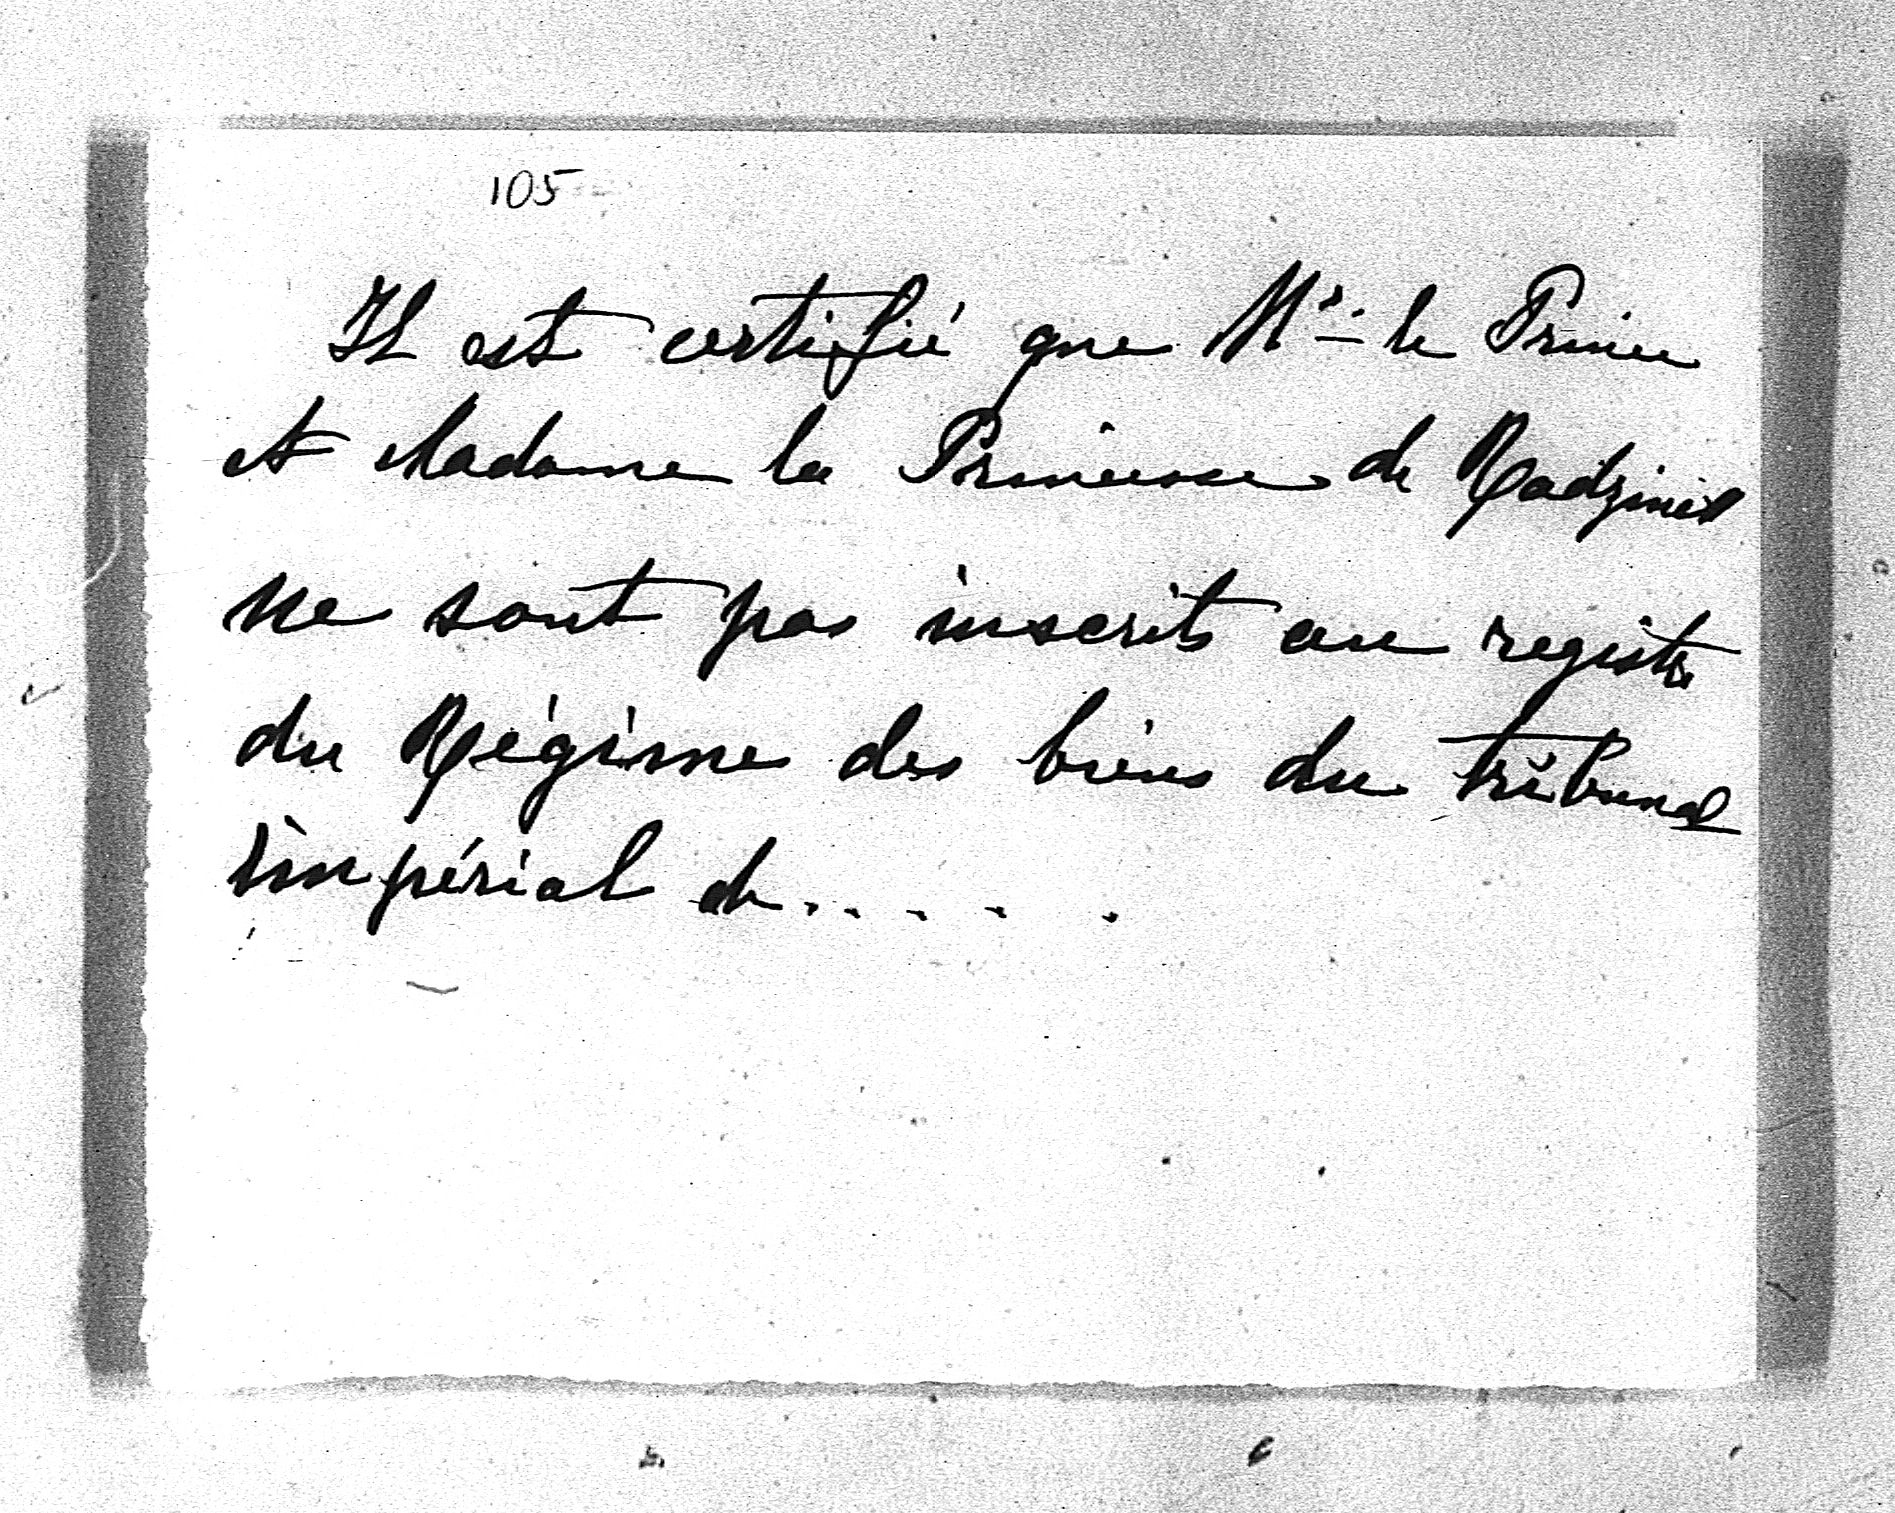 105
Il est certifié que Mr. le Prince
et Madame la Princesse de Radziwill
ne sont pas inscrits au registre
du Régime des biens du tribunal
impérial de.....